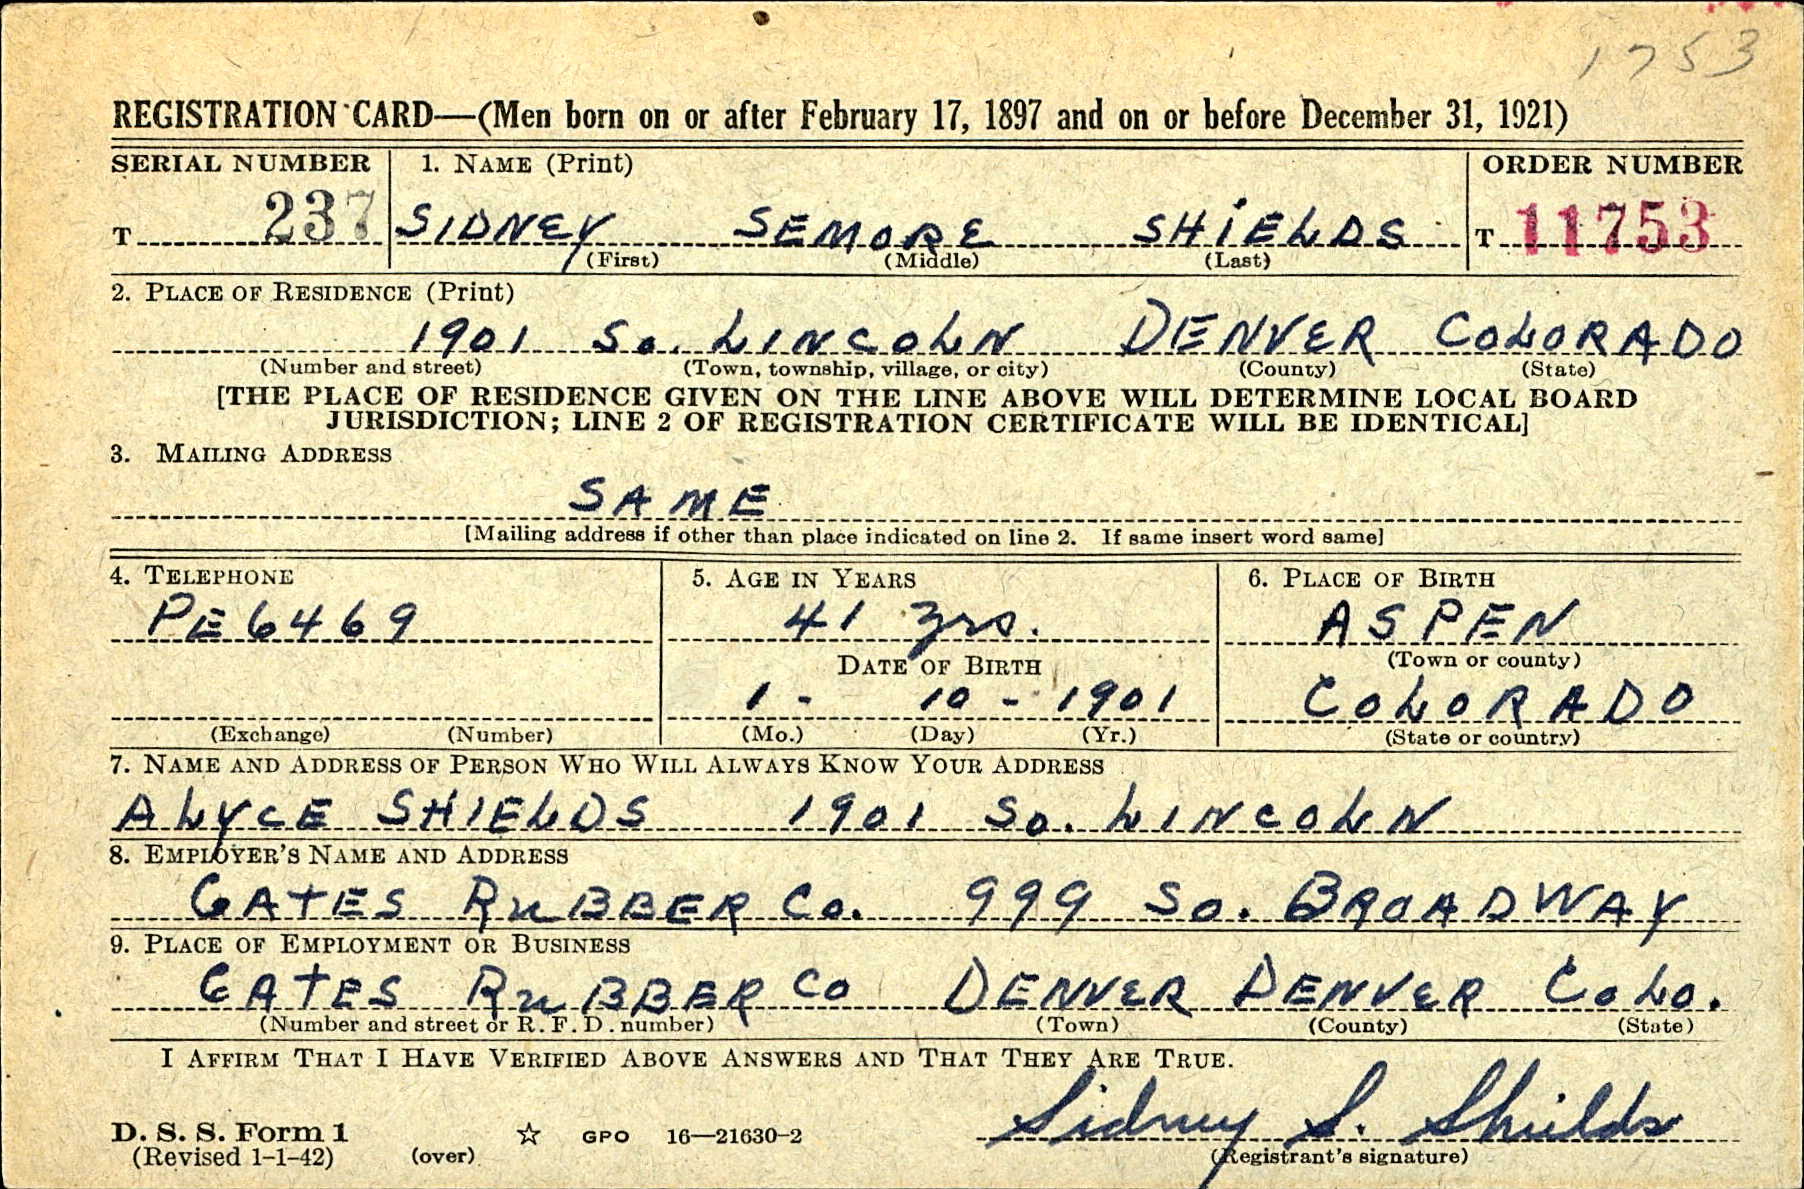 1753
REGISTRATION CARD—(Men born on or after February 17, 1897 and on or before December 31, 1921)
SERIAL NUMBER 1. NAME (Print) ORDER NUMBER
T 237 SIDNEY SEMORE SHiELDS T 11753
(First) (Middle) (Last)
2. PLACE OF RESIDENCE (Print)
1901 So. LINCOLN DENVER COLORADO
(Number and street) (Town, township, village, or city) (County) (State)
[THE PLACE OF RESIDENCE GIVEN ON THE LINE ABOVE WILL DETERMINE LOCAL BOARD
JURISDICTION; LINE 2 OF REGISTRATION CERTIFICATE WILL BE IDENTICAL]
3. MAILING ADDRESS
SAME
[Mailing address if other than place indicated on line 2. If same insert word same]
4. TELEPHONE 5. AGE IN YEARS 6. PLACE OF BIRTH
PE 6469 41 yrs. ASPEN
DATE OF BIRTH (Town or county)
1 - 10 - 1901 COLORADO
(Exchange) (Number) (Mo.) (Day) (Yr.) (State or country)
7. NAME AND ADDRESS OF PERSON WHO WILL ALWAYS KNOW YOUR ADDRESS
ALYCE SHIELDS 1901 So. LINCOLN
8. EMPLOYER'S NAME AND ADDRESS
GATES RUBBER Co. 999 So. BROADWAY
9. PLACE OF EMPLOYMENT OR BUSINESS
GATES RUBBER Co DENVER DENVER COLO.
(Number and street or R. F. D. number) (Town) (County) (State)
I AFFIRM THAT I HAVE VERIFIED ABOVE ANSWERS AND THAT THEY ARE TRUE.
Sidney S. Shields
D. S. S. Form 1 GPO 16—21630-2
(Revised 1-1-42) (over) (Registrant's signature)